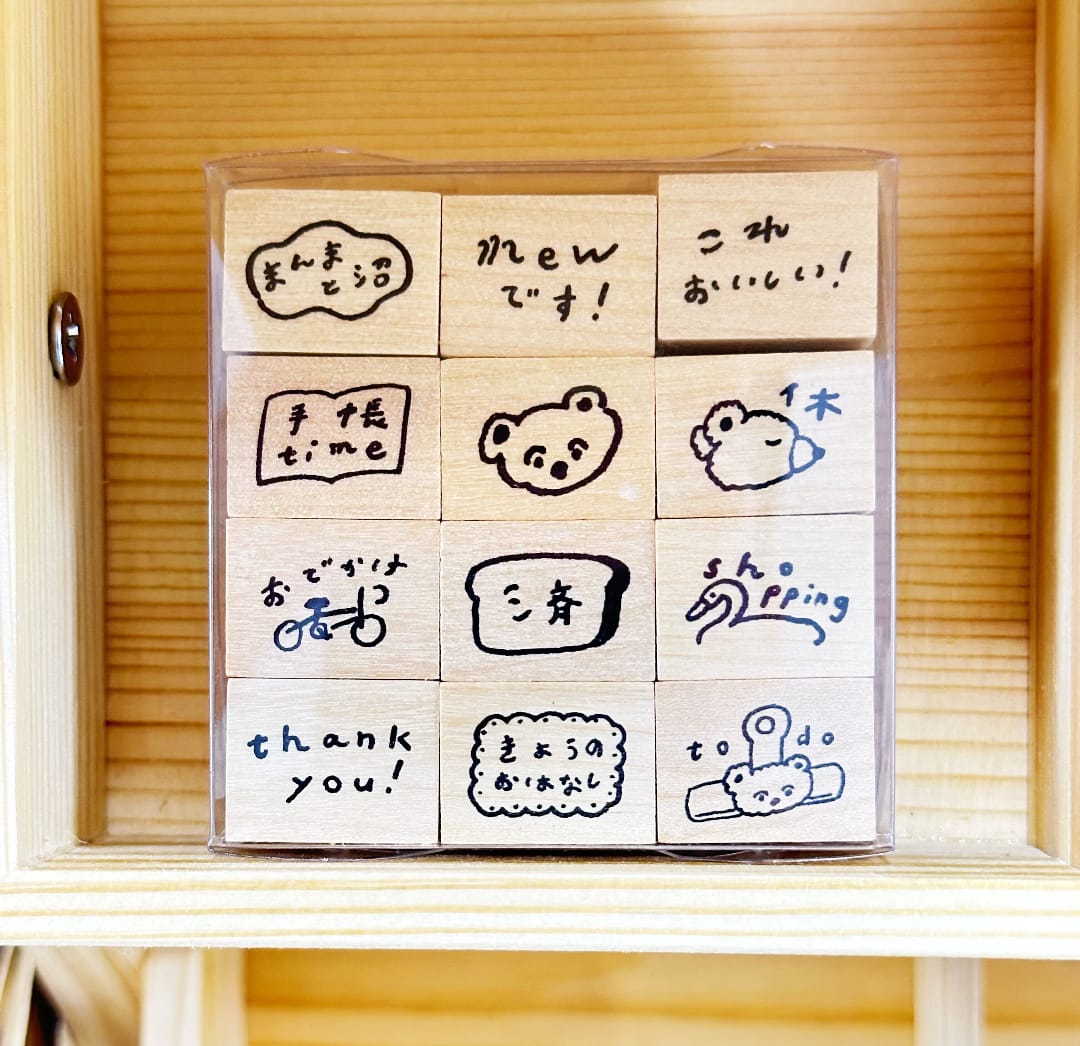 まんま
と沼
new
です!
これ
おいしい!
手帳
time
休
おでかけ
済
sho
pping
thank
you!
きょうの
おはなし
to do